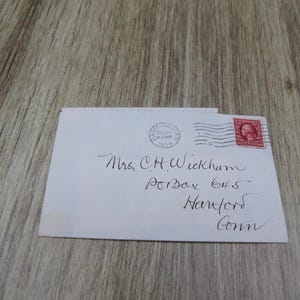 Mrs. C. H. Wickham
PO Box 645
Hartford
Conn